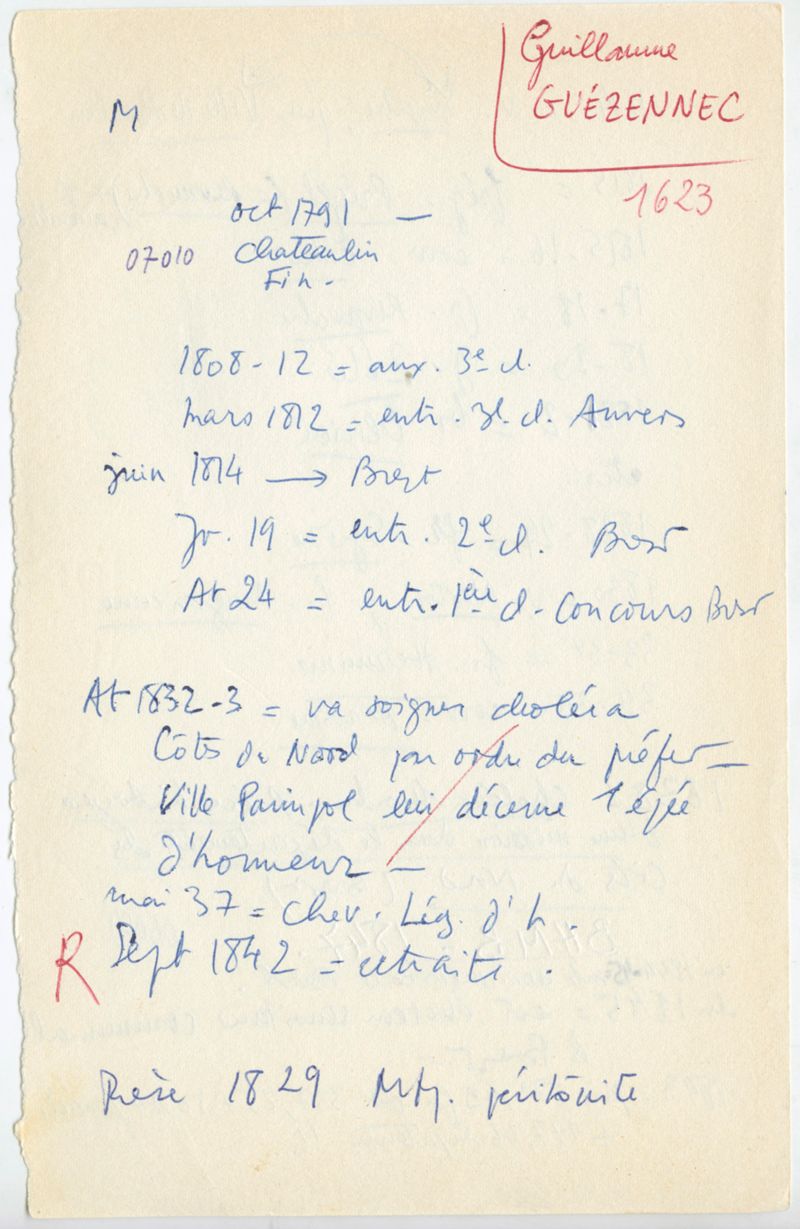 Guillaume
GUÉZENNEC
1623
M
oct 1791 —
07010 Chateaulin
Fin.
1808-12 = aux. 3e cl.
mars 1812 = entr. 3e cl. Anvers
juin 1814 → Brest
Jv. 19 = entr. 2e cl. Brest
At 24 = entr. 1ère cl. Concours Brest
At 1832-3 = va soigner choléra
Côts du Nord par ordre du préfet —
Ville Paimpol lui décerne 1 épée
d'honneur —
mai 37 = Chev. Lég. d'h.
R Sept 1842 = retraite.
Thèse 1829 Mtp. péritonite